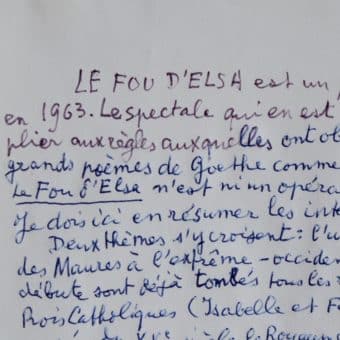 LE FOU D'ELSA est un
en 1963. Le spectale qui en est
plier aux règles auxquelles ont ob
grands poèmes de Goethe comme
Le Fou d'Elsa n'est ni un opéra
Je dois ici en résumer les inte
Deux thèmes s'y croisent : l'u
des Maures à l'extrême-occiden
débute sont déjà tombés tous les
Rois Catholiques (Isabelle et F
siècle le Royaume